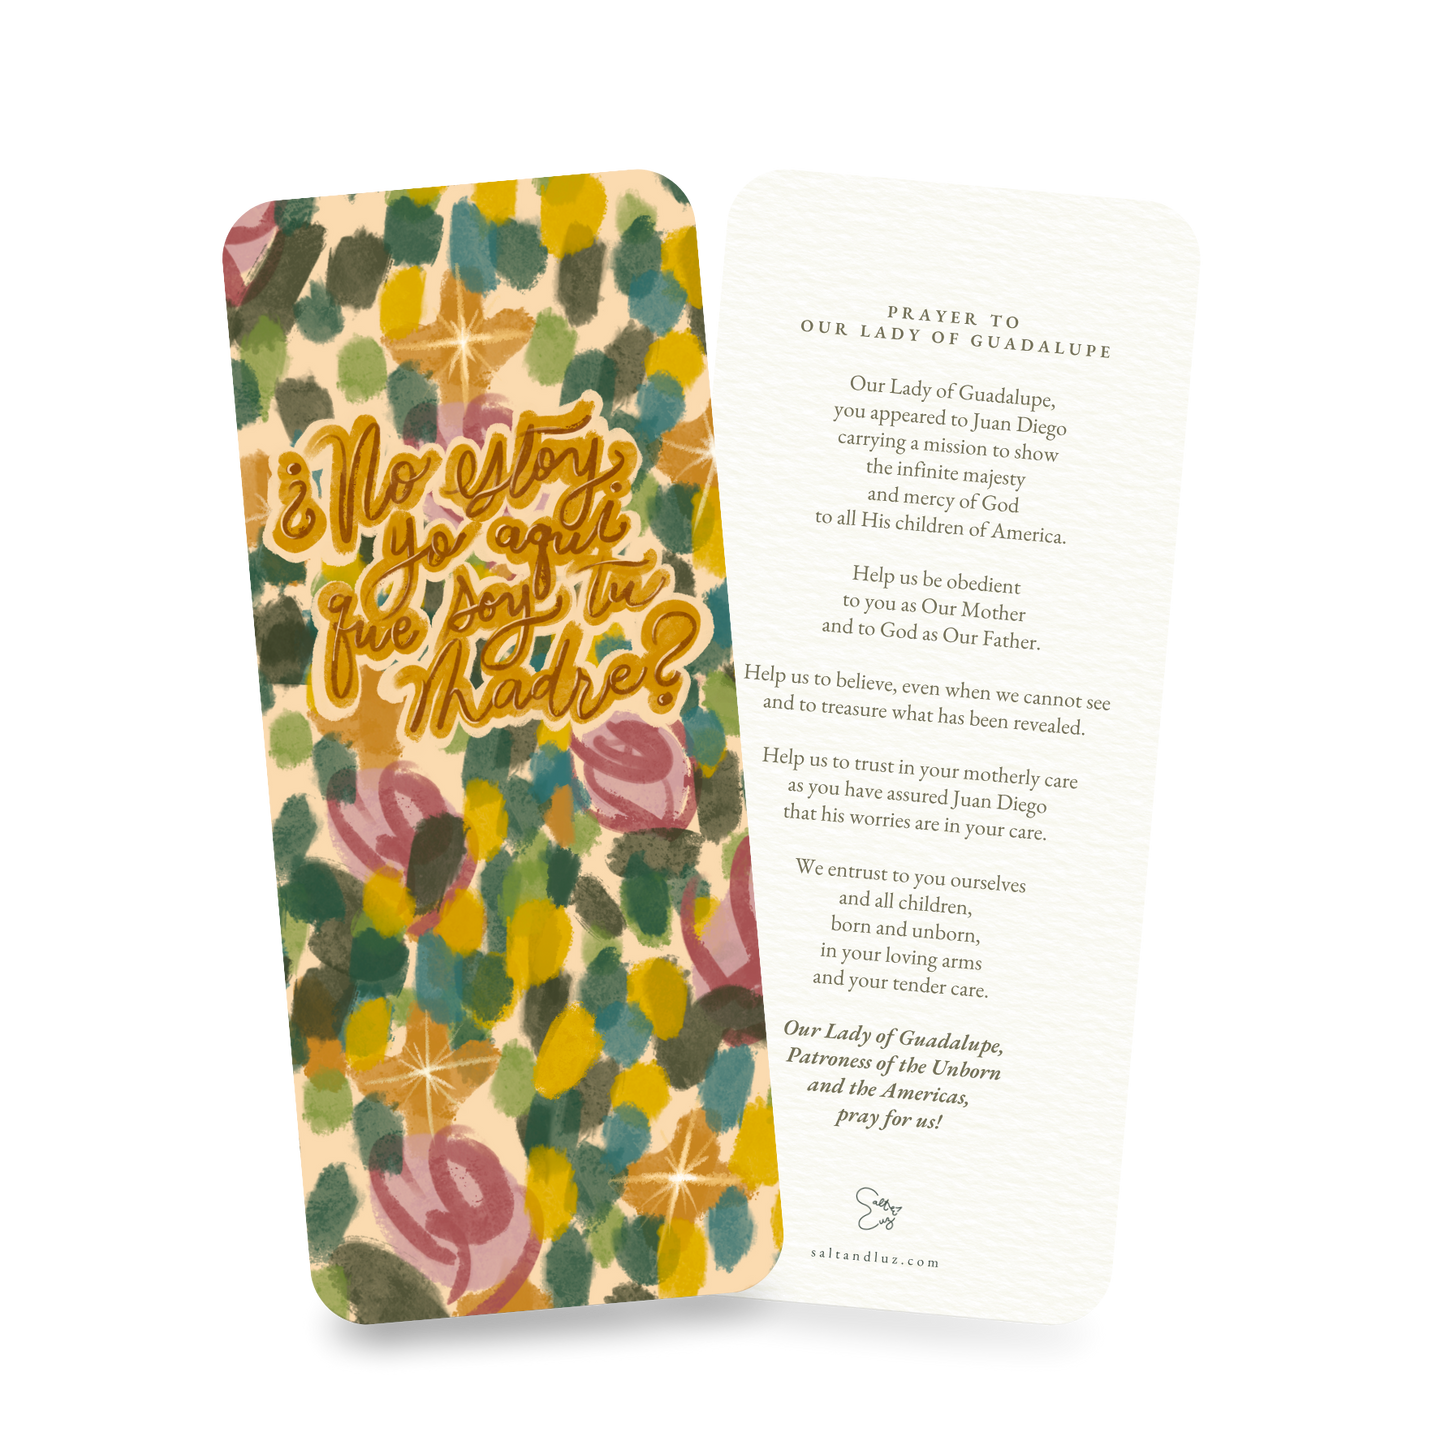 ¿No estoy
yo aqui
que soy tu
Madre?
PRAYER TO
OUR LADY OF GUADALUPE
Our Lady of Guadalupe,
you appeared to Juan Diego
carrying a mission to show
the infinite majesty
and mercy of God
to all His children of America.
Help us be obedient
to you as Our Mother
and to God as Our Father.
Help us to believe, even when we cannot see
and to treasure what has been revealed.
Help us to trust in your motherly care
as you have assured Juan Diego
that his worries are in your care.
We entrust to you ourselves
and all children,
born and unborn,
in your loving arms
and your tender care.
Our Lady of Guadalupe,
Patroness of the Unborn
and the Americas,
pray for us!
Salt &
Luz
saltandluz.com